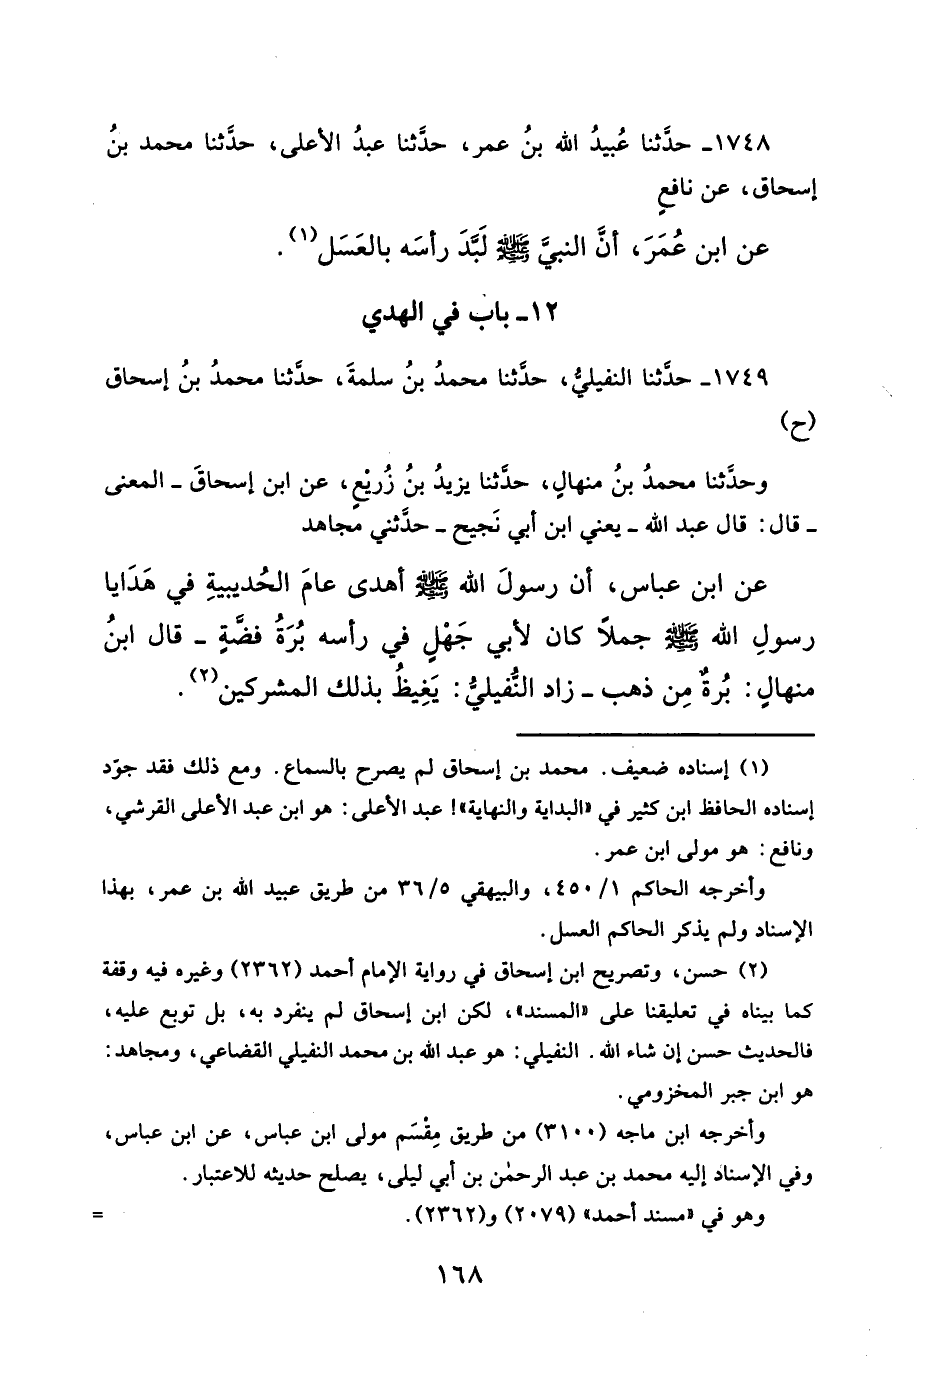 ١٧٤٨ـ حدَّثنا عُبيدُ الله بنُ عمر، حدَّثنا عبدُ الأعلى، حدَّثنا محمد بنُ
إسحاق، عن نافعٍ
عن ابن عُمَرَ، أنَّ النبيَّ ﷺ لَبَّدَ رأسَه بالعَسَل(١).
١٢ـ باب في الهدي
١٧٤٩ـ حدَّثنا النفيليُّ، حدَّثنا محمدُ بنُ سلمةَ، حدَّثنا محمدُ بنُ إسحاق
(ح)
وحدَّثنا محمدُ بنُ منهالٍ، حدَّثنا يزيدُ بنُ زُريْعٍ، عن ابن إسحاقَ ـ المعنى
ـ قال: قال عبد الله ـ يعني ابن أبي نَجيح ـ حدَّثني مجاهد
عن ابن عباس، أن رسولَ الله ﷺ أهدى عامَ الحُديبيةِ في هَدَايا
رسولِ الله ﷺ جملاً كان لأبي جَهْلٍ في رأسه بُرَةُ فضَّةٍ ـ قال ابنُ
منهالٍ: بُرةٌ مِن ذهب ـ زاد النُّفيليُّ: يَغِيظُ بذلك المشركين(٢).
(١) إسناده ضعيف. محمد بن إسحاق لم يصرح بالسماع. ومع ذلك فقد جوّد
إسناده الحافظ ابن كثير في «البداية والنهاية»! عبد الأعلى: هو ابن عبد الأعلى القرشي،
ونافع: هو مولى ابن عمر.
وأخرجه الحاكم ١/ ٤٥٠، والبيهقي ٥/ ٣٦ من طريق عبيد الله بن عمر، بهذا
الإسناد ولم يذكر الحاكم العسل.
(٢) حسن، وتصريح ابن إسحاق في رواية الإمام أحمد (٢٣٦٢) وغيره فيه وقفة
كما بيناه في تعليقنا على «المسند»، لكن ابن إسحاق لم ينفرد به، بل توبع عليه،
فالحديث حسن إن شاء الله. النفيلي: هو عبد الله بن محمد النفيلي القضاعي، ومجاهد:
هو ابن جبر المخزومي.
وأخرجه ابن ماجه (٣١٠٠) من طريق مِقْسَم مولى ابن عباس، عن ابن عباس،
وفي الإسناد إليه محمد بن عبد الرحمٰن بن أبي ليلى، يصلح حديثه للاعتبار.
وهو في «مسند أحمد» (٢٠٧٩) و(٢٣٦٢). =
١٦٨